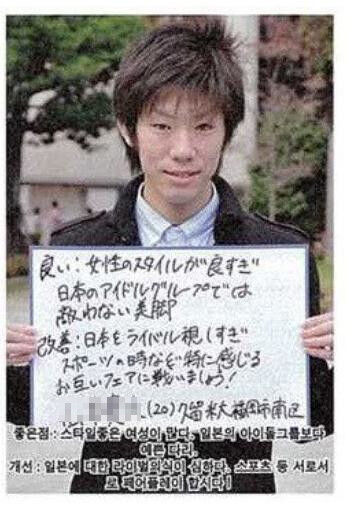 良い：女性のスタイルが良すぎ
日本のアイドルグループでは
敵わない美脚
改善：日本をライバル視しすぎ
スポーツの時など特に感じる
お互いフェアに戦いましょう！
(20)久留米大 福岡市南区
좋은점 : 스타일좋은 여성이 많다. 일본의 아이돌그룹보다
예쁜 다리.
개선 : 일본에 대한 라이벌의식이 심하다. 스포츠 등 서로서
로 페어플레이 합시다!